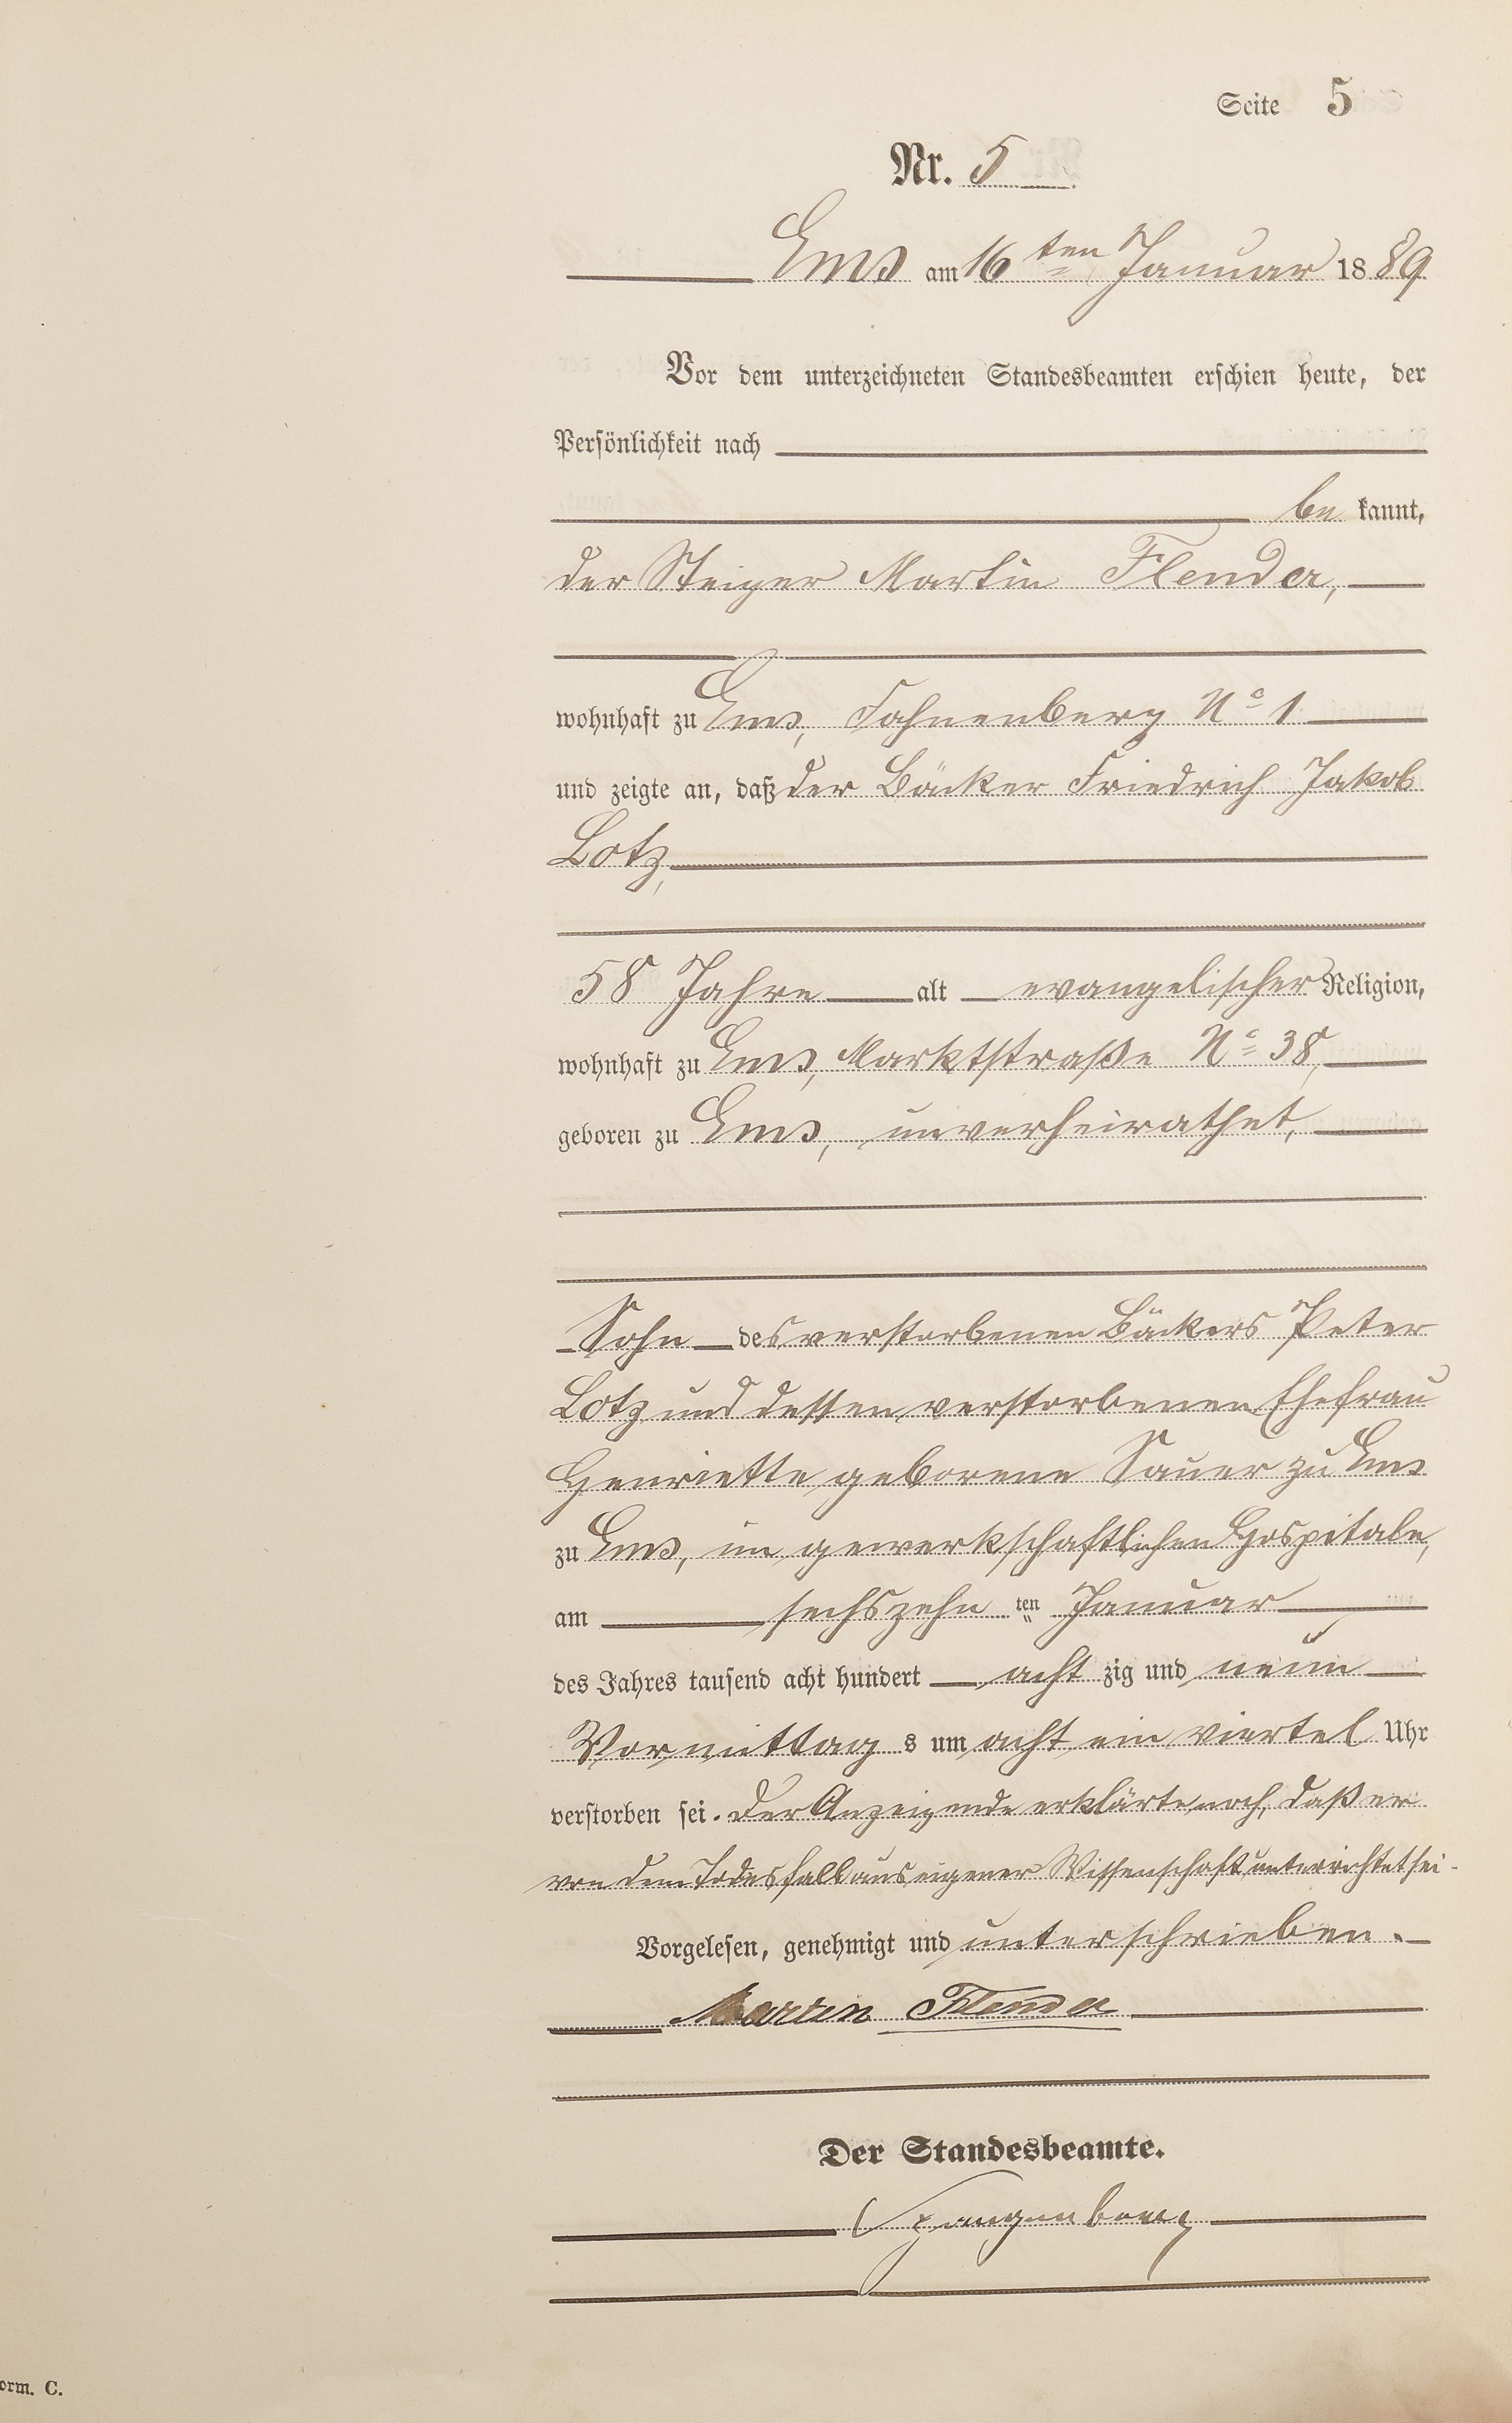 Seite 5
Nr. 5
Ems am 16ten Januar 1889
Vor dem unterzeichneten Standesbeamten erschien heute, der
Persönlichkeit nach
be kannt,
der Steiger Martin Flender,
wohnhaft zu Ems, Fahnenberg No 1
und zeigte an, daß der Bäcker Friedrich Jakob
Lotz,
58 Jahre alt evangelischer Religion,
wohnhaft zu Ems, Marktstraße No 38,
geboren zu Ems, unverheirathet,
Sohn des verstorbenen Bäckers Peter
Lotz und dessen verstorbenen Ehefrau
Henriette geborene Sauer zu Ems
zu Ems, im gewerkschaftlichen Hospitale,
am sechszehn ten Januar
des Jahres tausend acht hundert acht zig und neun
Vormittag s um acht ein viertel Uhr
verstorben sei. Der Anzeigende erklärte noch, daß er
von dem Todesfall aus eigener Wissenschaft unterrichtet sei.
Vorgelesen, genehmigt und unterschrieben.
Martin Flender
Der Standesbeamte.
Spangenberg
orm. C.